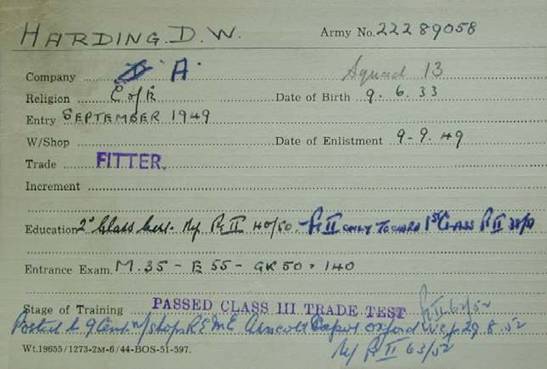 HARDING. D. W. Army No. 22289058
Company A. Squad 13
Religion C of E Date of Birth 9. 6. 33
Entry SEPTEMBER 1949
W/Shop Date of Enlistment 9-9. 49
Trade FITTER.
Increment
Education 2nd Class Cert. Pt II ONLY TOWARD 1st CLASS Pt II
Entrance Exam. M. 35 - E 55 - GK 50 = 140
Stage of Training PASSED CLASS III TRADE TEST Pt II 62/52
Posted to 9 Cent. w/shops R.E.M.E. Oxford w.e.f. 29.8.52
Pt II 63/52
Wt.19655/1273-2M-6/44-BOS-51-597.